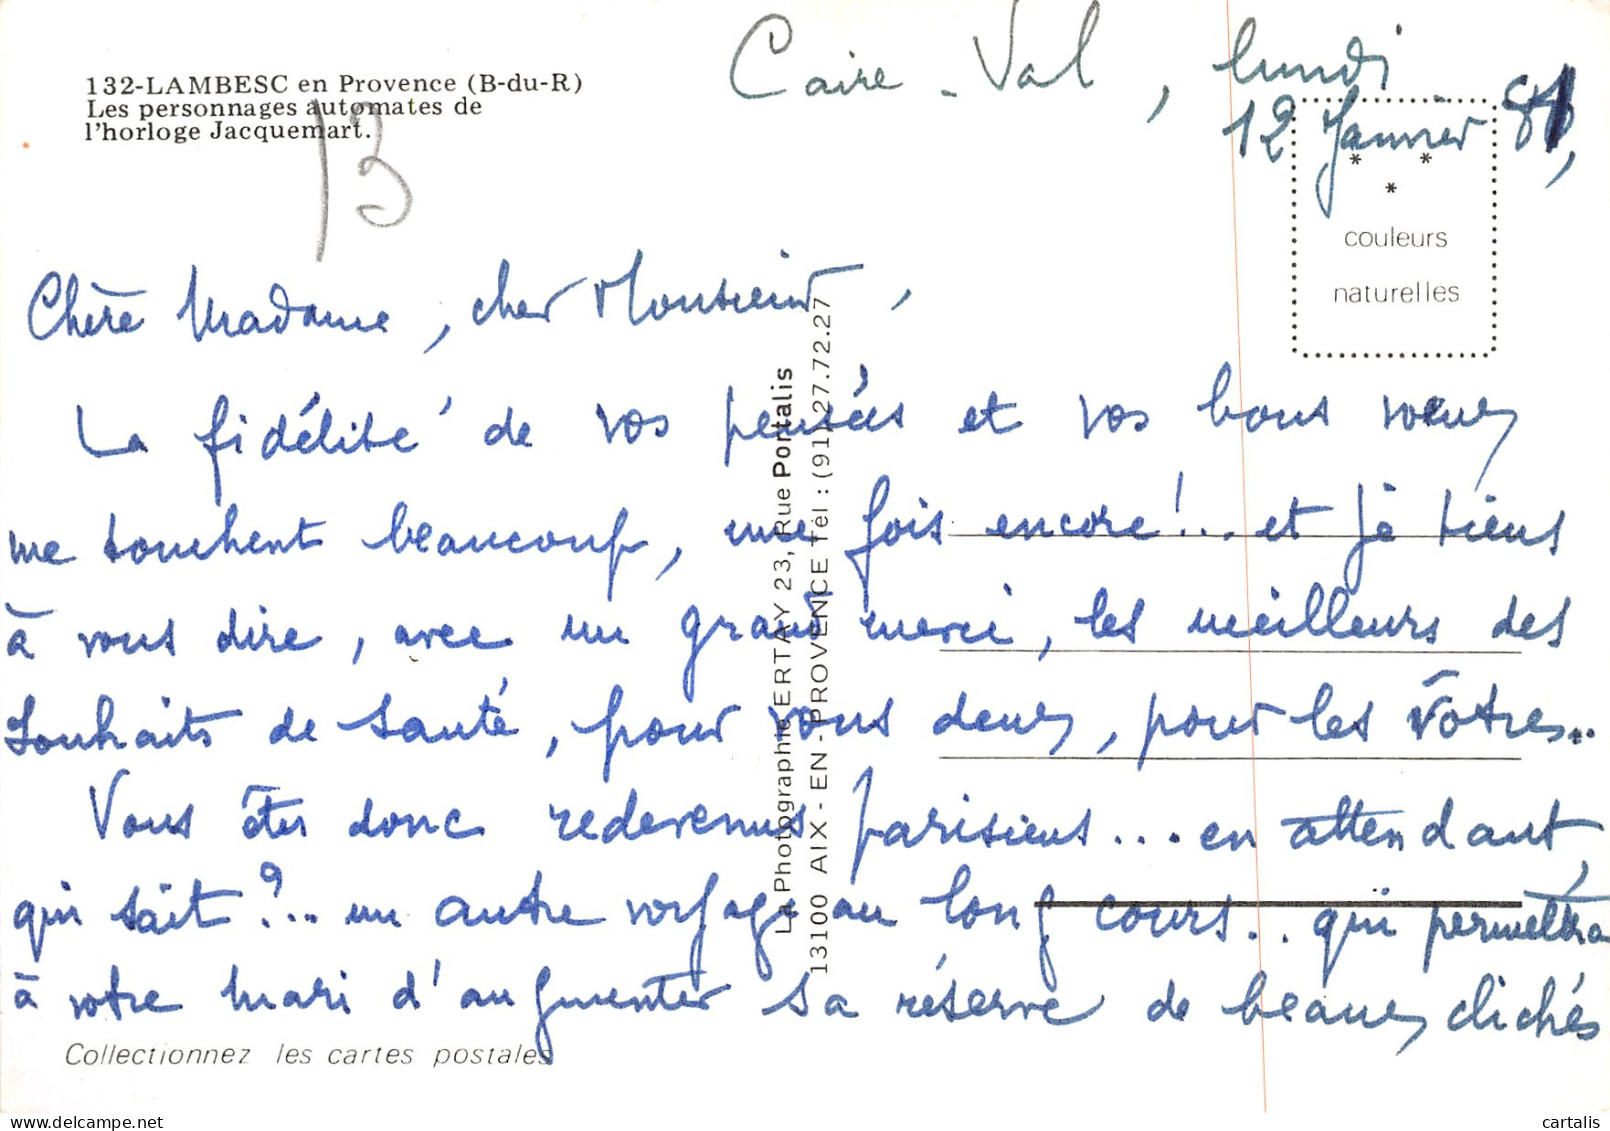 132-LAMBESC en Provence (B-du-R)
Les personnages automates de
l'horloge Jacquemart.
13
Caire-Val, lundi
12 Janvier 81,
* *
*
couleurs
naturelles
Chère Madame, cher Monsieur,
La fidélité de vos pensées et vos bons voeux
me touchent beaucoup, une fois encore!... et je tiens
à vous dire, avec un grand merci, les meilleurs des
souhaits de santé, pour vous deux, pour les vôtres..
Vous êtes donc redevenus parisiens... en attendant,
qui sait?... un autre voyage au long cours.. qui permettra
à votre mari d'augmenter sa réserve de beaux clichés
La Photographie ERTAY 23, Rue Portalis
13100 AIX - EN - PROVENCE Tél : (91) 27.72.27
Collectionnez les cartes postales
delcampe.net
cartalis